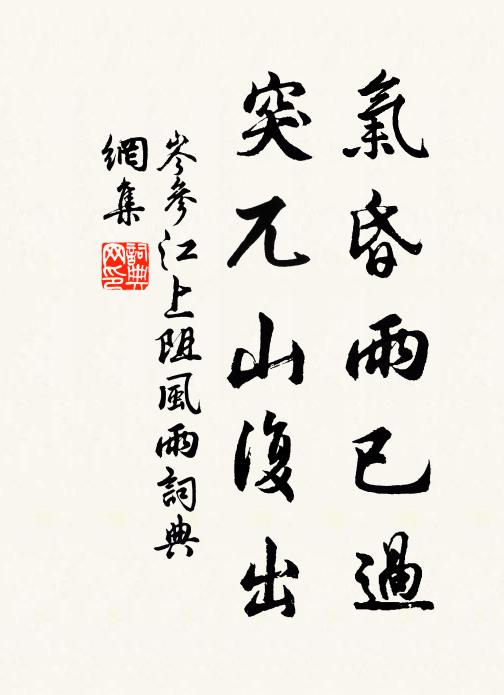 氣昏雨已過
突兀山復出
岑參江上阻風雨詞典
網集
詞典
网印